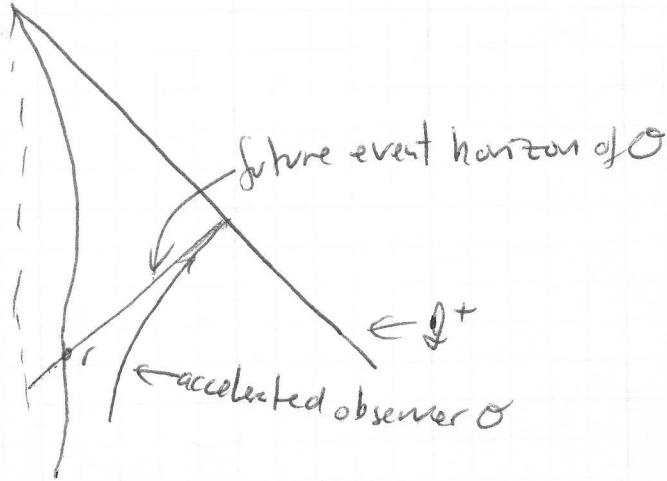 future event horizon of O
← I +
r
← accelerated observer O